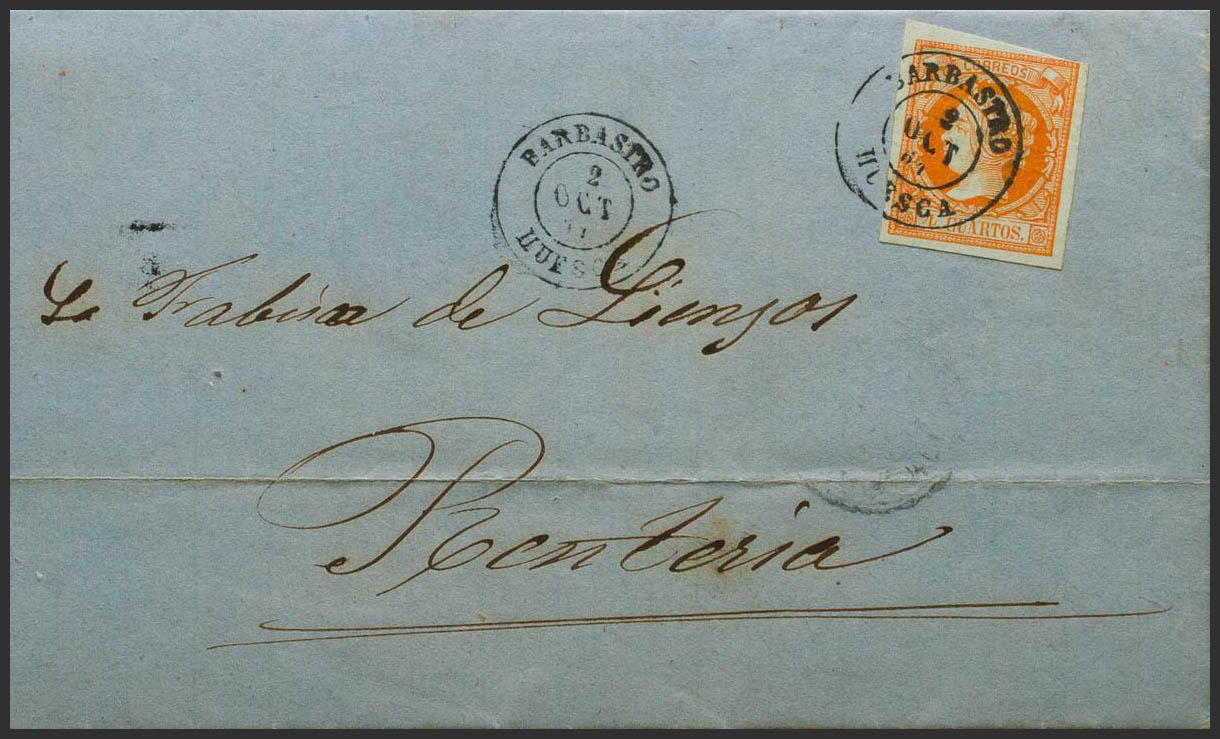 CORREOS
BARBASTRO
2
OCT
HUESCA
CUARTOS.
BARBASTRO
2
OCT
HUESCA
Fabrica de Lienzos
Renteria